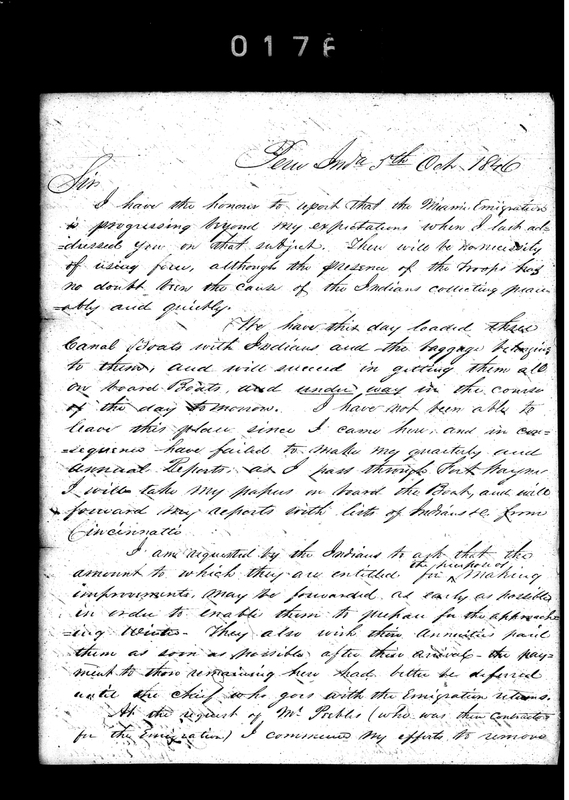 0176
Peru Inda 5th Oct 1846
Sir
I have the honour to report that the Miami Emigration
is progressing beyond my expectations when I last ad-
-dressed you on that subject. There will be no necessity
of using force, although the presence of the troops has
no doubt been the cause of the Indians collecting peace-
-ably and quietly.
We have this day loaded three
Canal Boats with Indians and the baggage belonging
to them, and will succeed in getting them all
on board Boats, and under way in the course
of the day tomorrow. I have not been able to
leave this place since I came here, and in con-
-sequence have failed to make my quarterly and
Annual Reports, as I pass through Fort Wayne
I will take my papers on board the Boat, and will
forward my reports with lists of Indians &c. from
Cincinnatti
I am requested by the Indians to ask that the
amount to which they are entitled for the purpose of Making
improvements may be forwarded as early as possible
in order to enable them to prepare for the approach-
-ing Winter. They also wish their Annuities paid
them as soon as possible after their arrival - the pay-
ment to those remaining here had better be deferred
until the chief who goes with the Emigration returns.
At the request of Mr. Peebles (who was then Contractor
for the Emigration) I commenced my efforts to remove